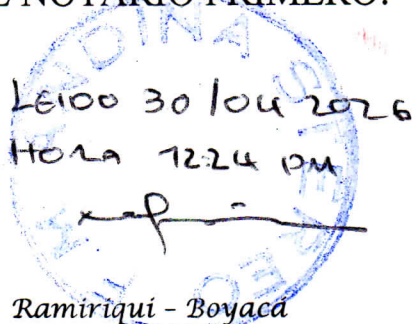 E NOTARIO PRIMERO.
LEIDO 30/04 2026
HORA 12:24 PM
Ramiriquí - Boyacá